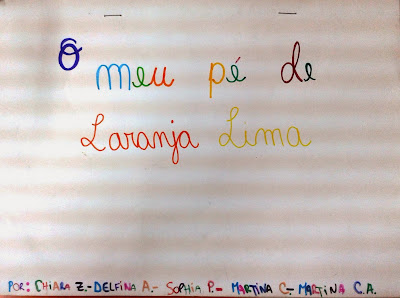 O meu pé de
Laranja Lima
POR: CHIARA Z.- DELFINA A.- SOPHIA P.- MARTINA C.- MARTINA C.A.